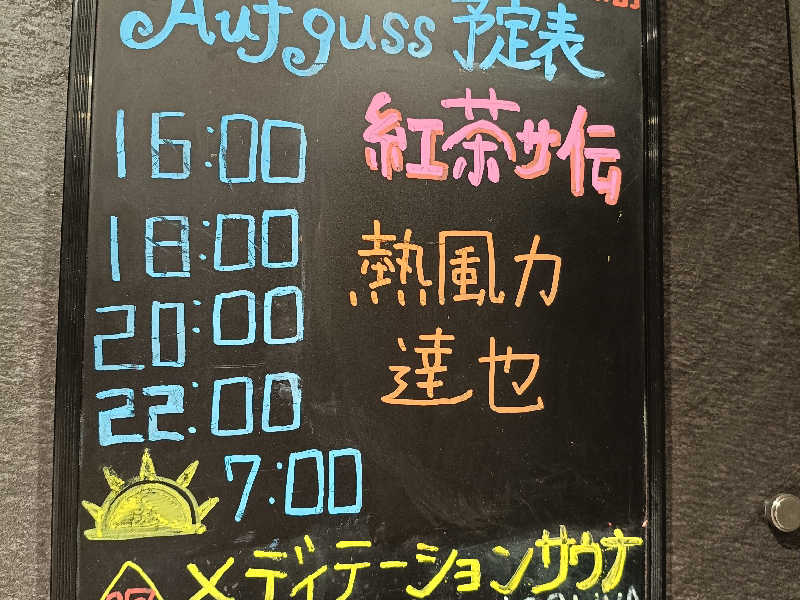 Aufguss 予定表
16:00 紅茶サ伝
18:00 熱風力
20:00
22:00 達也
7:00
メディテーションサウナ